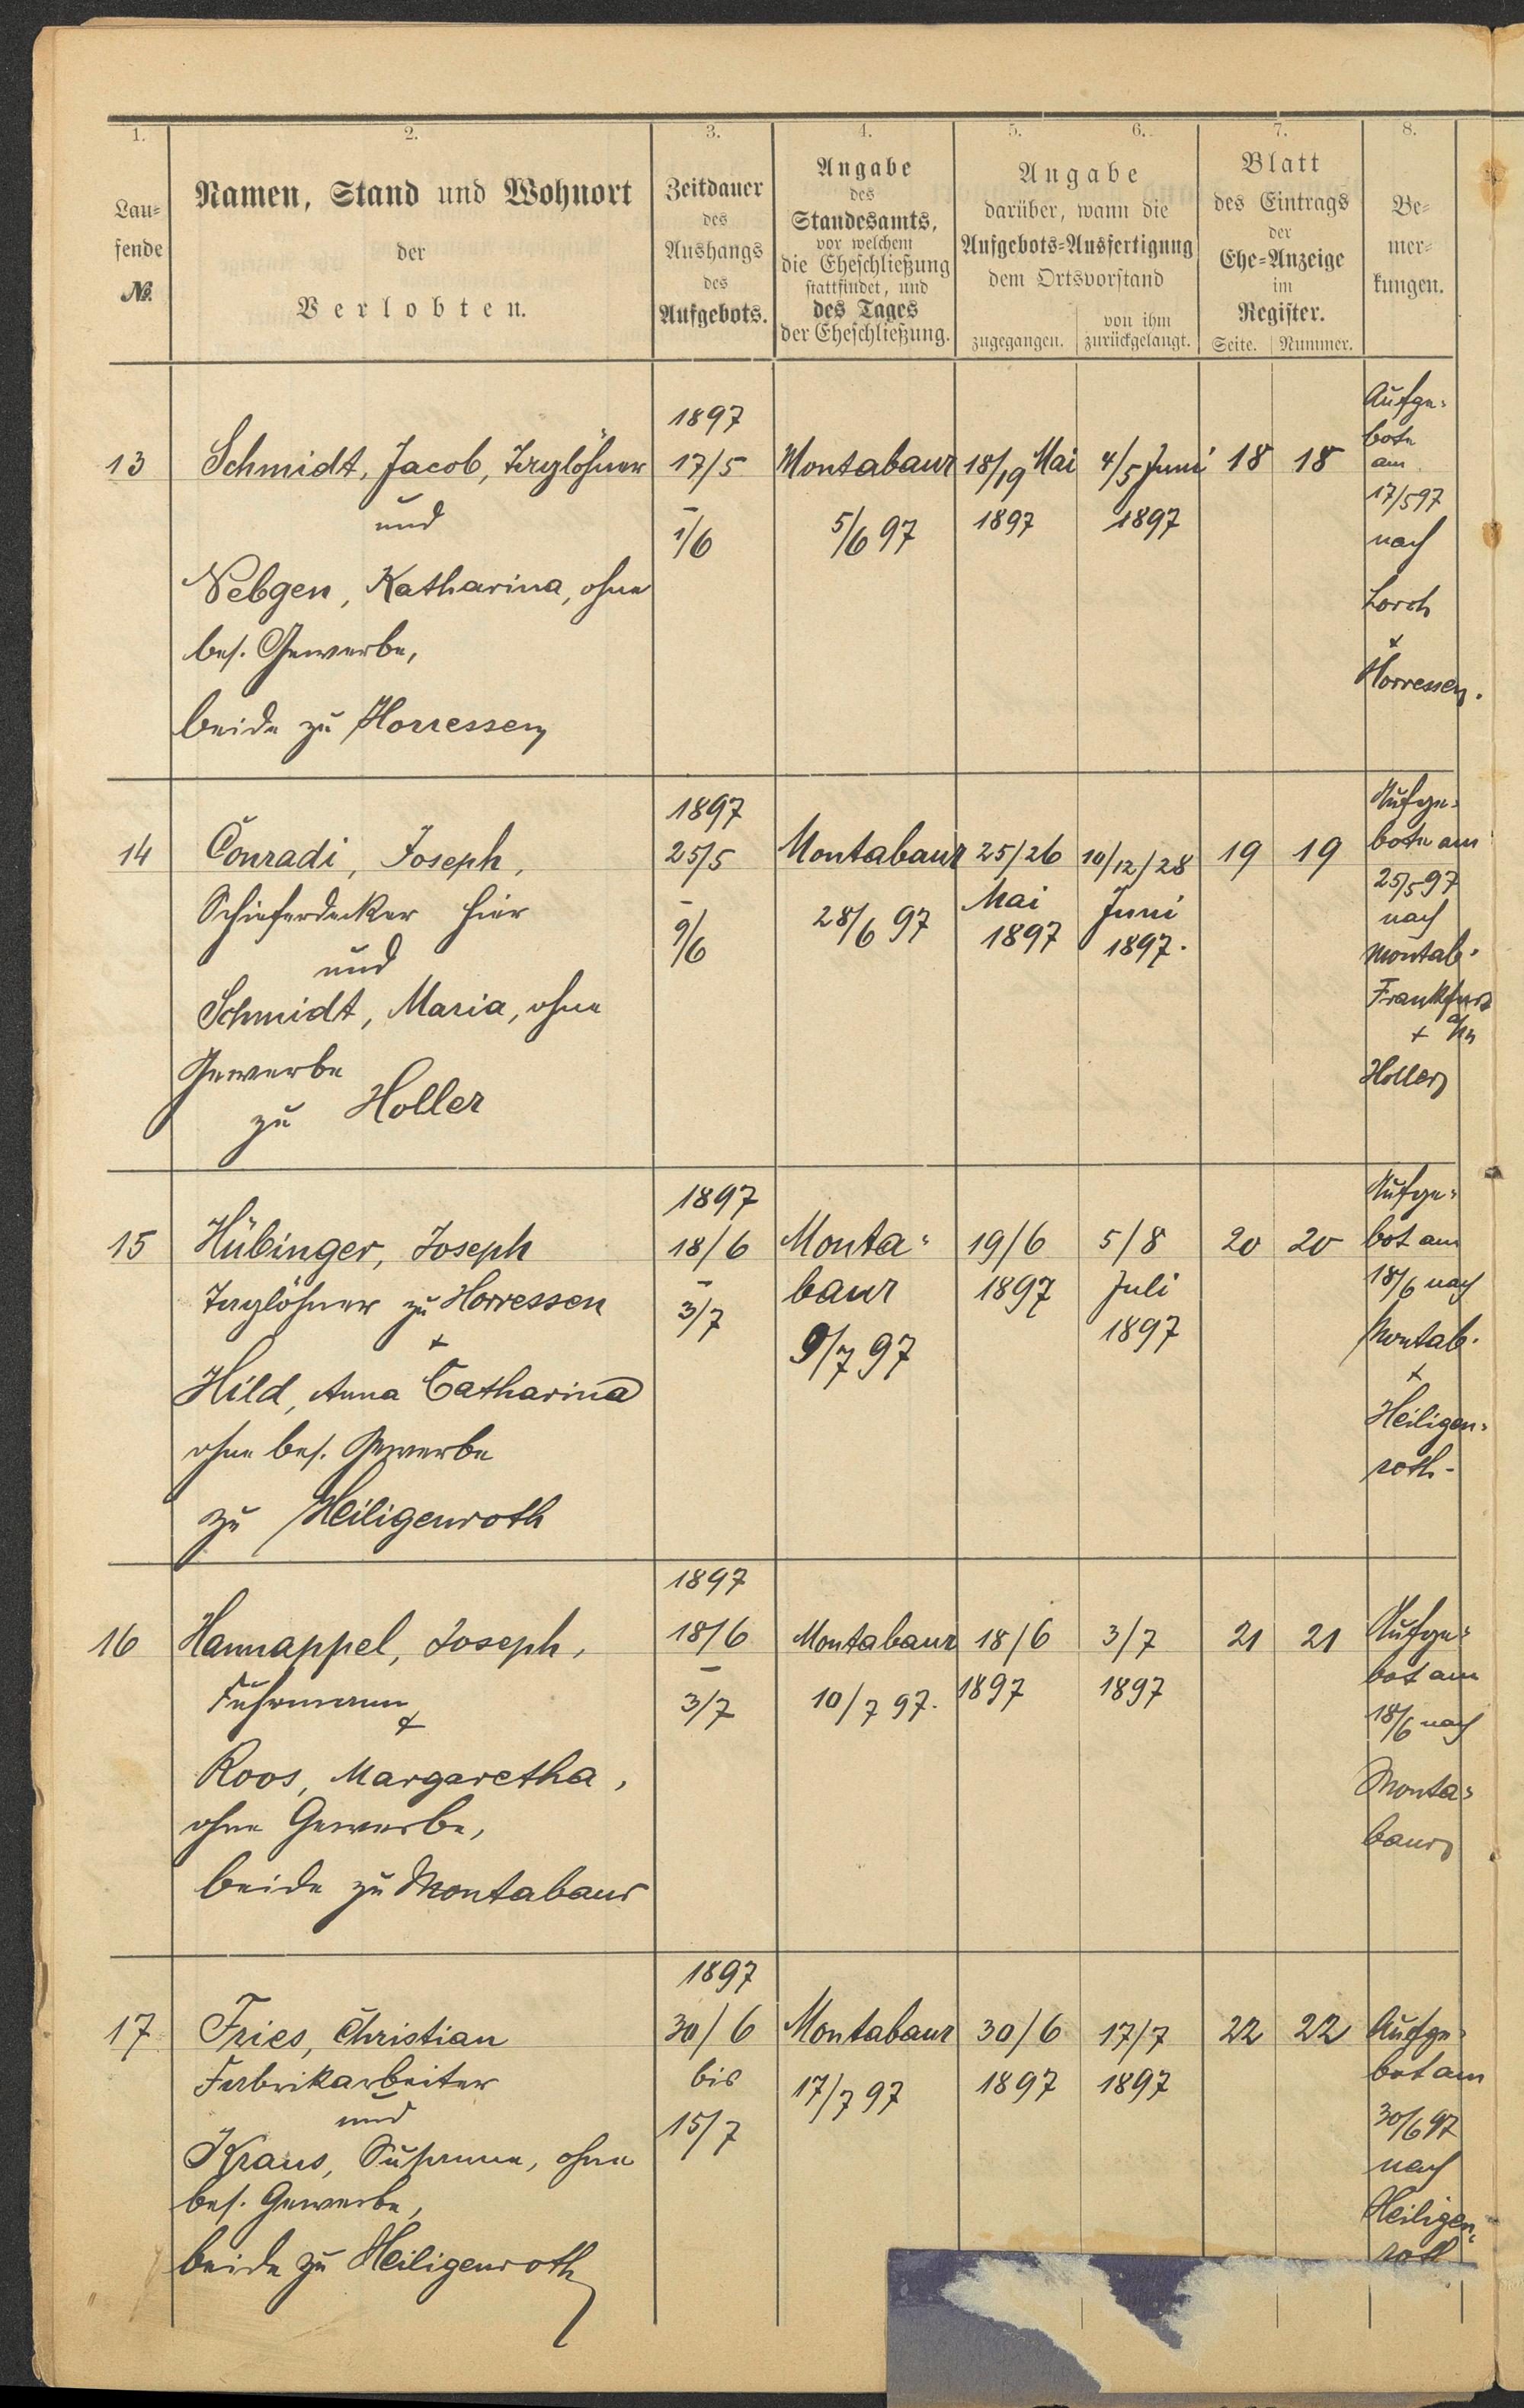 1. 2. 3. 4. 5. 6. 7. 8.
Lau=
fende
No.
Namen, Stand und Wohnort
der
Verlobten.
Zeitdauer
des
Aushangs
des
Aufgebots.
Angabe
des
Standesamts,
vor welchem
die Eheschließung
stattfindet, und
des Tages
der Eheschließung.
Angabe
darüber, wann die
Aufgebots=Ausfertigung
dem Ortsvorstand
zugegangen.
von ihm
zurückgelangt.
Blatt
des Eintrags
der
Ehe=Anzeige
im
Register.
Seite. Nummer.
Be=
mer=
kungen.
13
Schmidt, Jacob, Taglöhner
und
Nebgen, Katharina, ohne
bes. Gewerbe,
beide zu Horressen
1897
17/5
-
1/6
Montabaur
5/6 97
18/19 Mai
1897
4/5 Juni
1897
18 18
Aufge=
bote
am
17/5 97
nach
Lorch
+
Horressen.
14
Conradi, Joseph,
Schieferdecker hier
und
Schmidt, Maria, ohne
Gewerbe
zu Holler
1897
25/5
-
9/6
Montabaur
28/6 97
25/26
Mai
1897
10/12/28
Juni
1897.
19 19
Aufge=
bote am
25/5 97
nach
Montab.
Frankfurt
+ a/m
Holler
15
Hübinger, Joseph
Taglöhner zu Horressen
+
Hild, Anna Catharina
ohne bes. Gewerbe
zu Heiligenroth
1897
18/6
-
3/7
Monta=
baur
9/7 97
19/6
1897
5/8
Juli
1897
20 20
Aufge=
bot am
18/6 nach
Montab.
+
Heiligen=
roth.
16
Hannappel, Joseph,
Fuhrmann
+
Roos, Margaretha,
ohne Gewerbe,
beide zu Montabaur
1897
18/6
-
3/7
Montabaur
10/7 97.
18/6
1897
3/7
1897
21 21
Aufge=
bot am
18/6 nach
Monta=
baur
17
Fries, Christian
Fabrikarbeiter
und
Kraus, Susanna, ohne
bes. Gewerbe,
beide zu Heiligenroth
1897
30/6
bis
15/7
Montabaur
17/7 97
30/6
1897
17/7
1897
22 22
Aufge=
bot am
30/6 97
nach
Heiligen=
roth